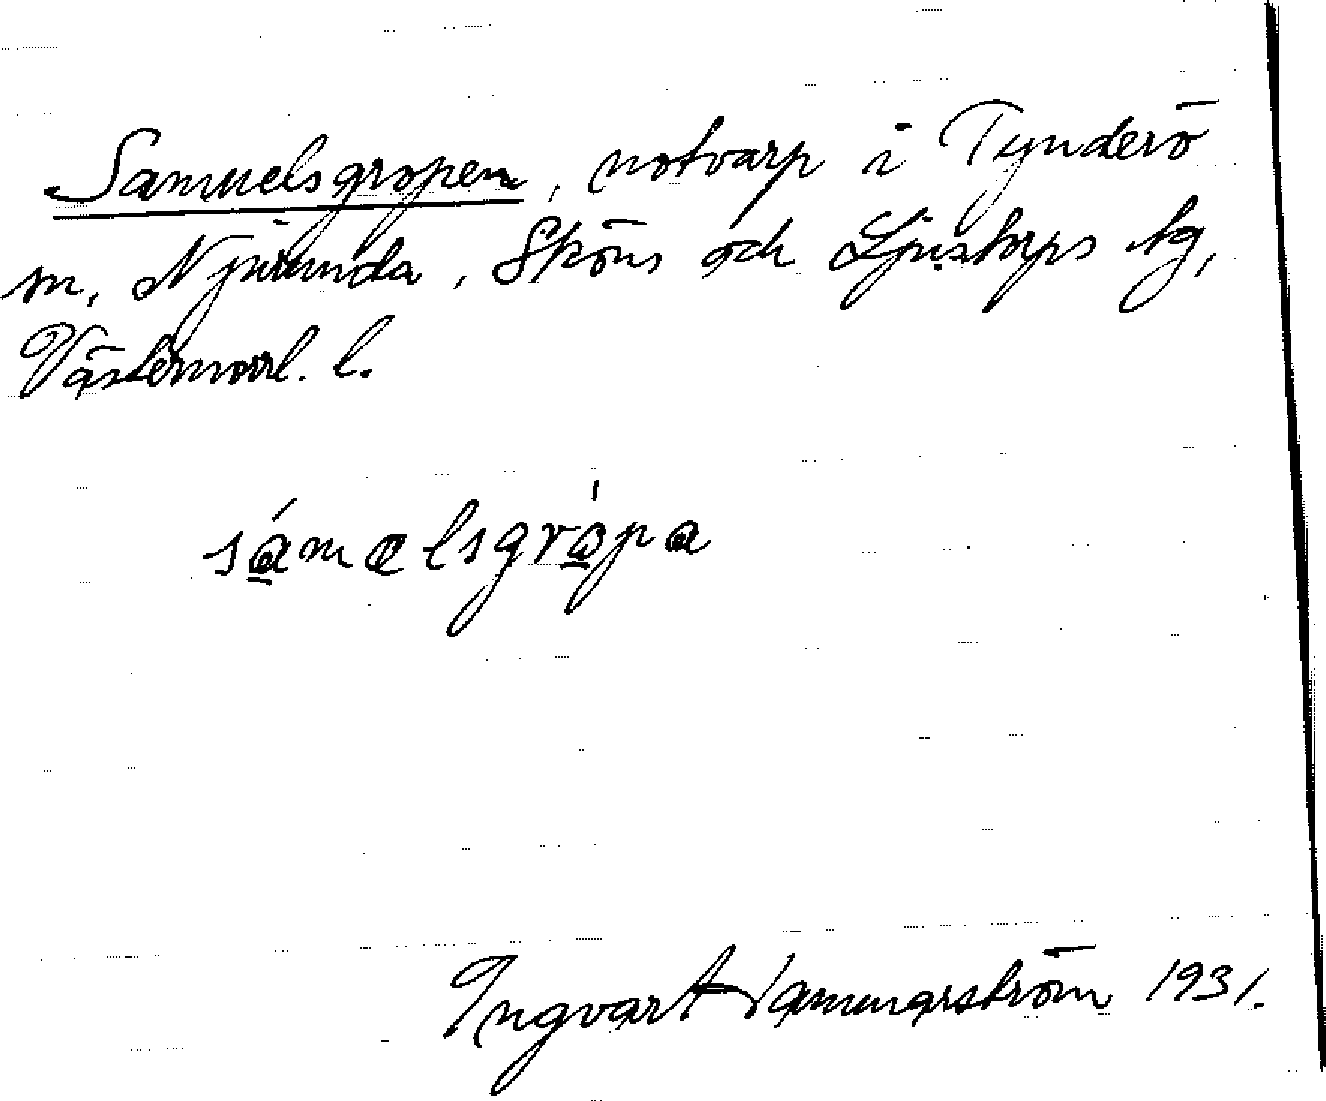 Samuelsgropen, notvarp i Tynderö
sn, Njurunda, Sköns och Ljustorps tg,
Västernorrl. l.
sámelsgrópa
Ingvar Hammarström 1931.